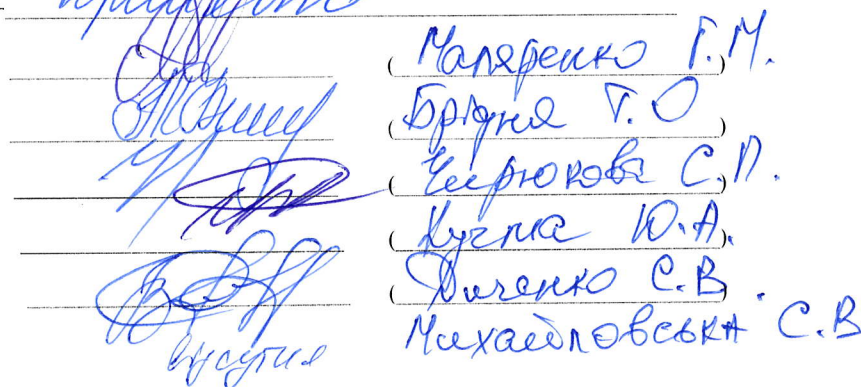 (Маляренко Г.М.)
(Брідня Т.О)
(Чирюкова С.П.)
(Кучма Ю.А.)
(Диченко С.В.)
відсутня Михайловська С.В